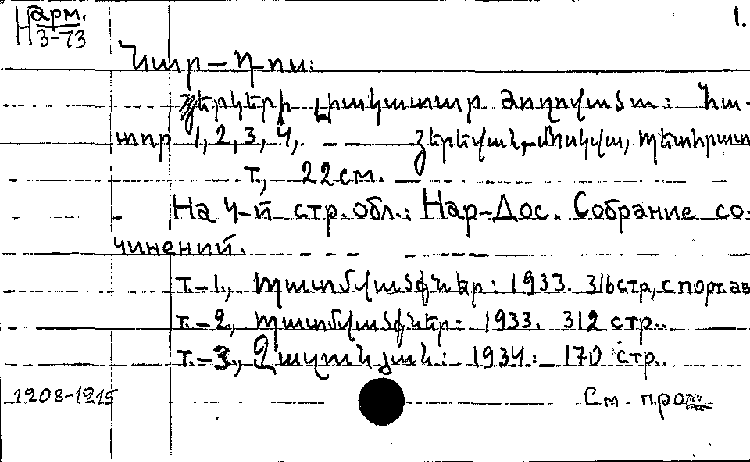 арм. 1.
Н 3-73
Նար-Դոս:
Երկերի լիակատար ժողովածու: Հա-
տոր 1, 2, 3, 4,. Երեվան-Մոսկվա, պետհրատ
т., 22 см.
На 4-й стр. обл.: Нар-Дос. Собрание со-
чинений.
т.-1, Պատմվածքներ: 1933. 316 стр, с порт. ав
т.-2, Պատմվածքներ: 1933. 312 стр.
т.-3, 1934. 170 стр.
1208-1215 См. прод